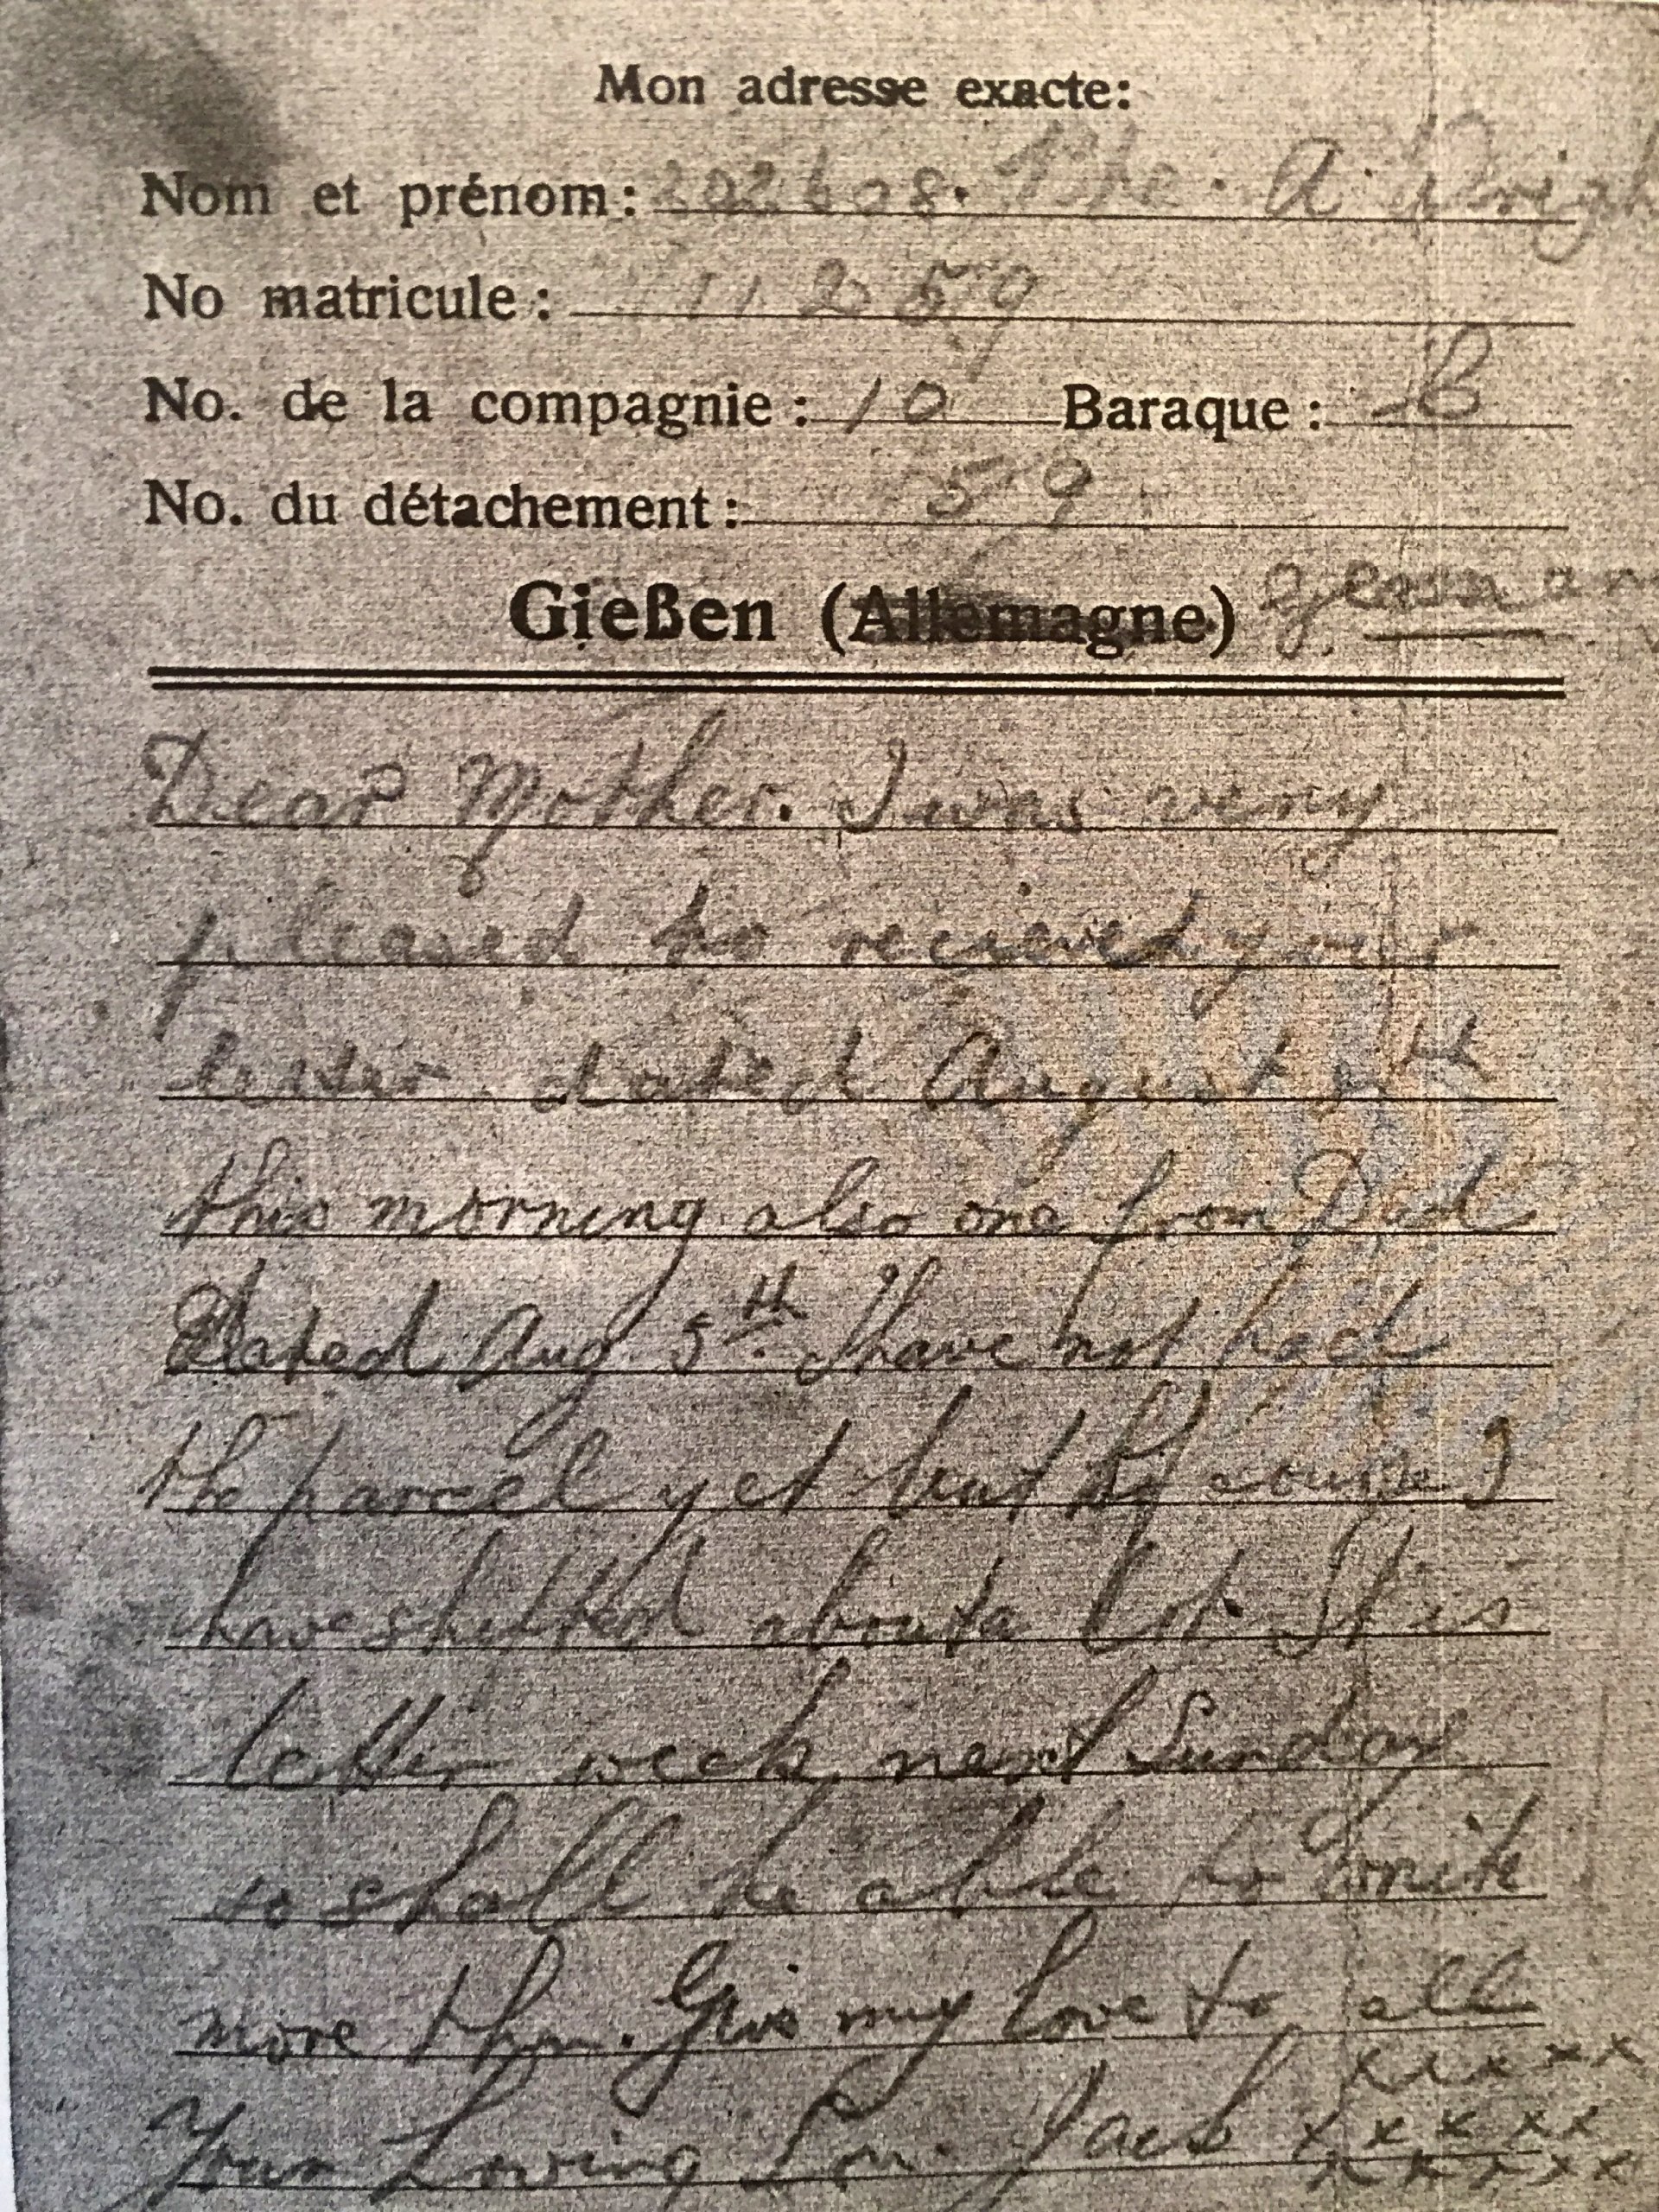 Mon adresse exacte:
Nom et prénom: 202608. Pte. A. Wrigh
No matricule: 11259
No. de la compagnie: 10 Baraque: B
No. du détachement: 59
Gießen (Allemagne) German
Dear Mother. I was very
pleased to recieved your
letter dated August th
this morning also one from Dad
Dated Aug 5th I have not had
the parcel yet but of course I
have shifted about a lot. It is
letter week next Sunday
so shall be able to write
more then. Give my love to all
xxxxx
Your Loving Son. Jack xxxxx
xxxxx